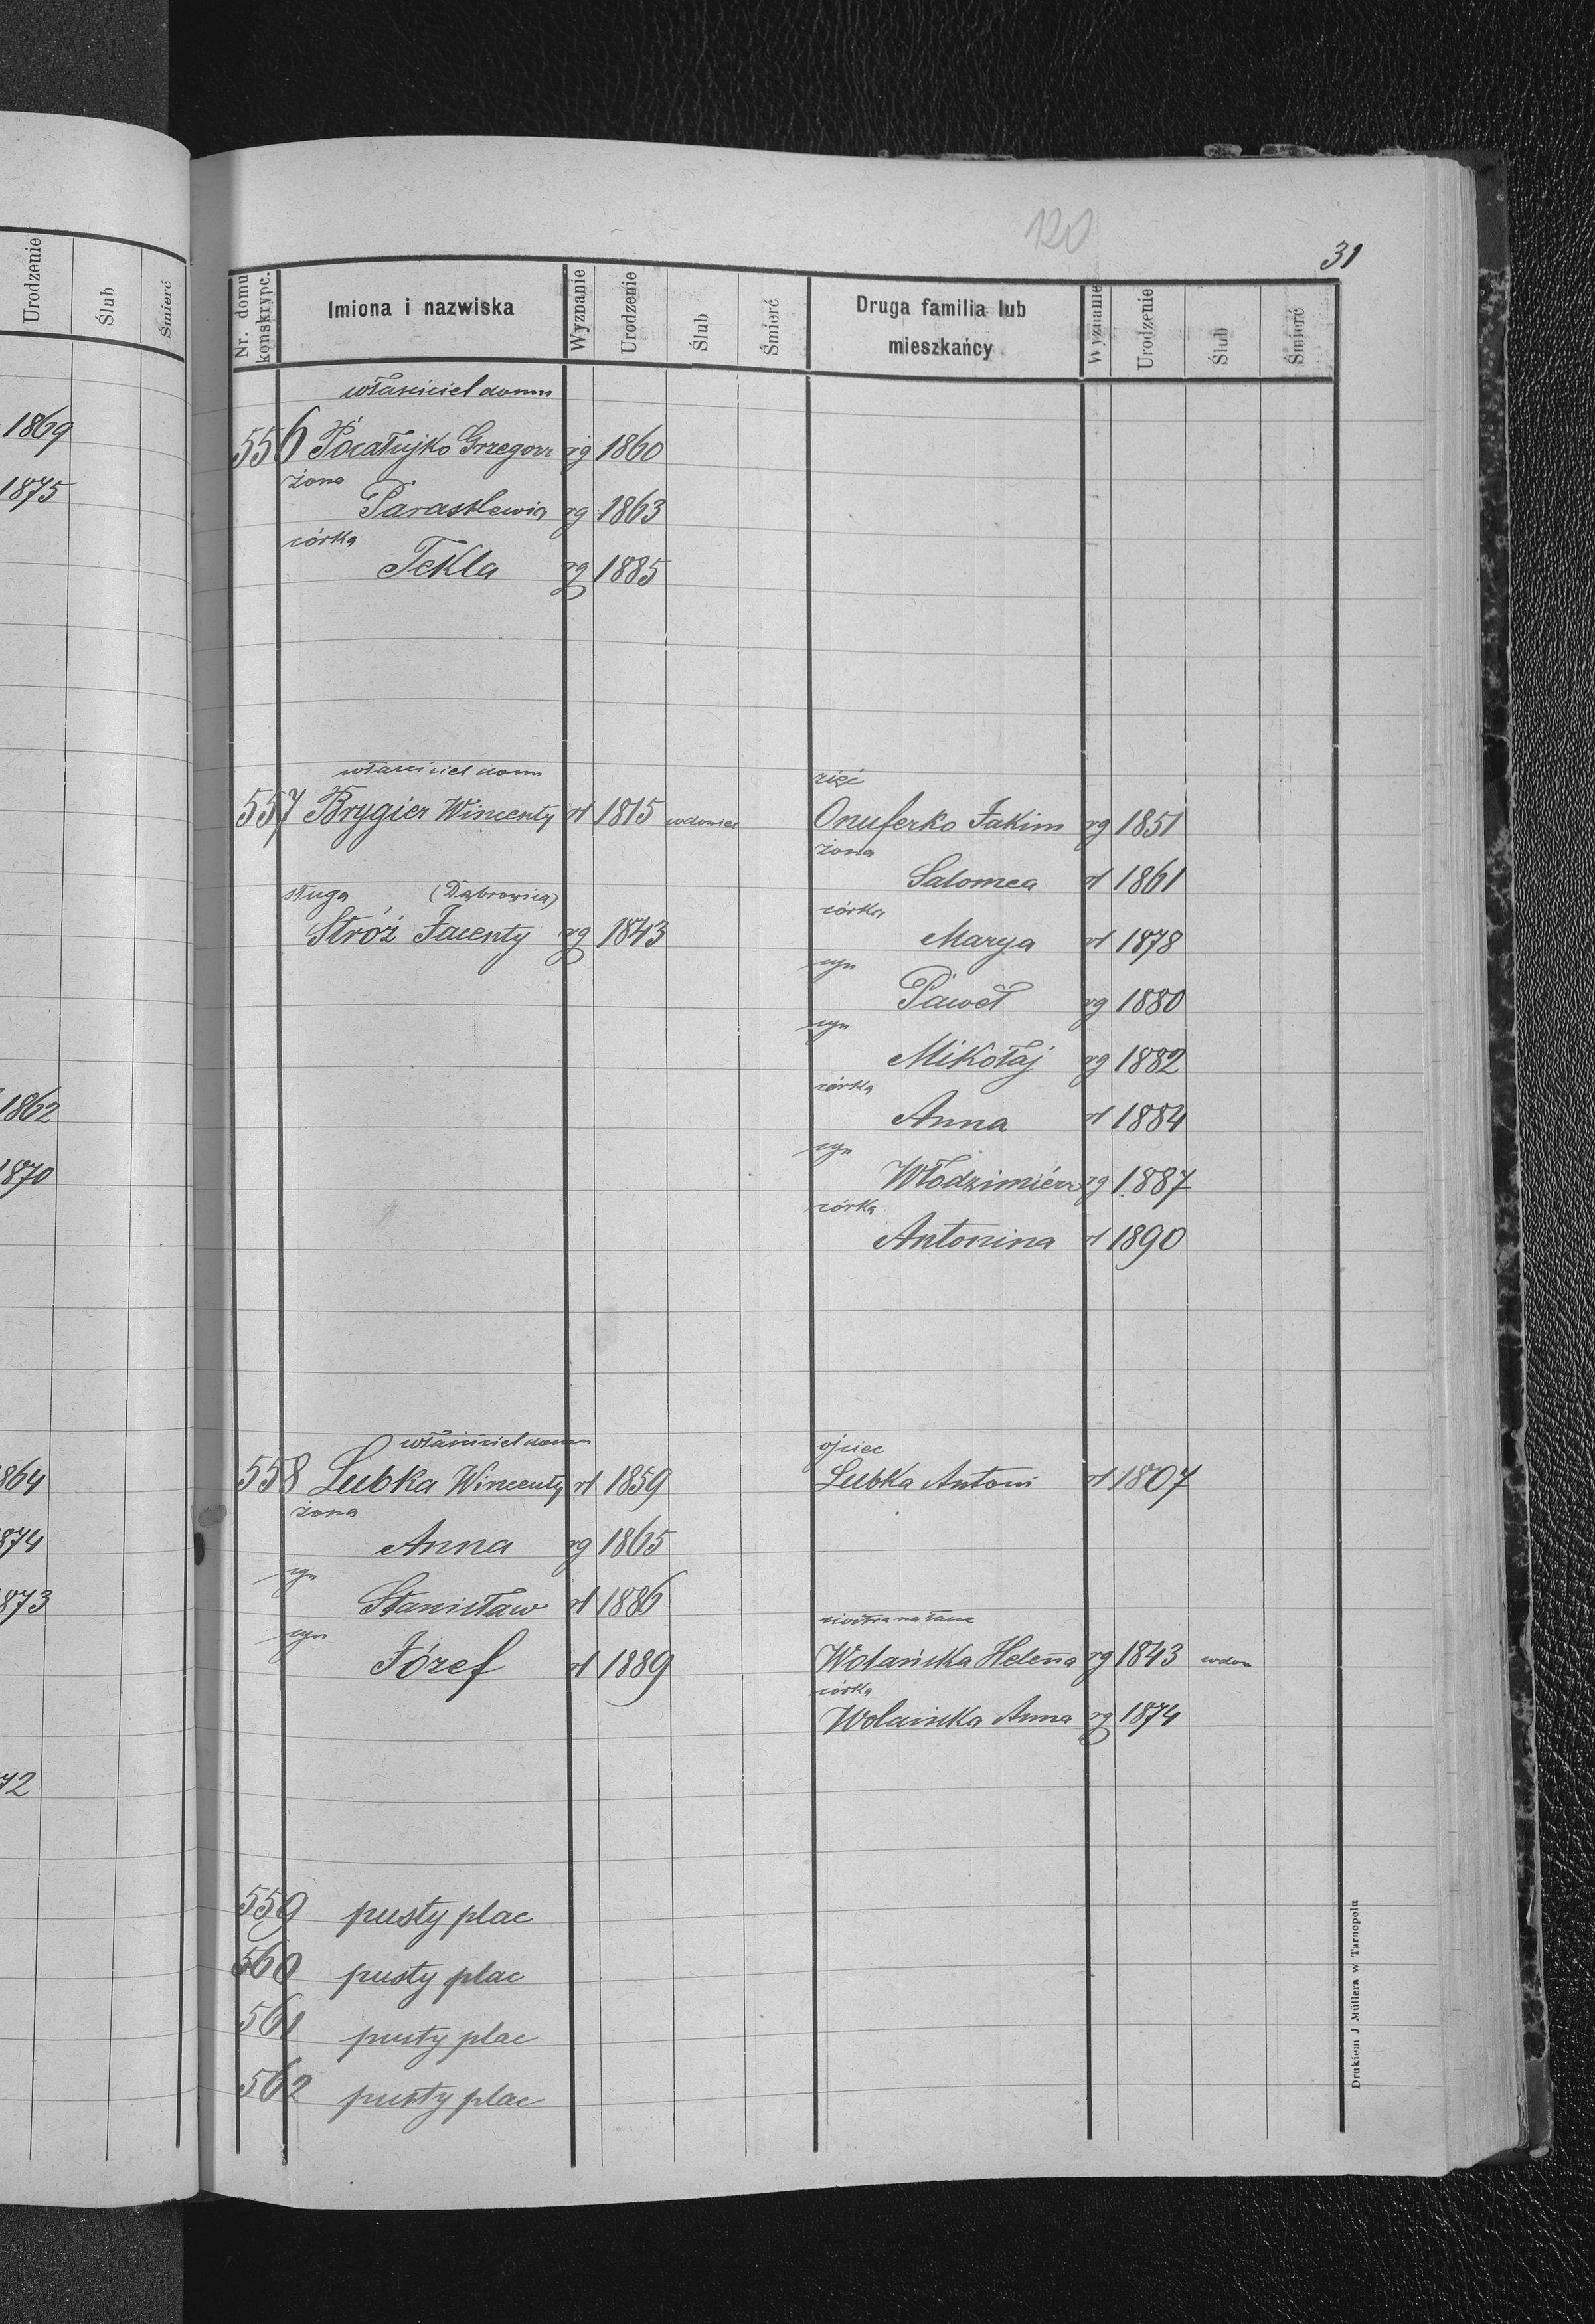 Urodzenie
Ślub
Śmierć
1869
1875
1862
1870
864
874
873
72
120
31
Nr. domu konskrypc.
Imiona i nazwiska
Wyznanie
Urodzenie
Ślub
Śmierć
Druga familia lub
mieszkańcy
Wyznanie
Urodzenie
Ślub
Śmierć
właściciel domu
556 Pocałujko Grzegorz rg 1860
żona
Paraskewia rg 1863
córka
Tekla rg 1885
właściciel domu
557 Brygier Wincenty rł 1815 wdowiec
sługa (Dąbrowica)
Stróż Jacenty rg 1843
zięć
Onuferko Jakim rg 1851
żona
Salomea rł 1861
córka
Marya rł 1878
syn
Paweł rg 1880
syn
Mikołaj rg 1882
córka
Anna rł 1884
syn
Włodzimiérz rg 1887
córka
Antonina rł 1890
właściciel domu
558 Lubka Wincenty rł 1859
żona
Anna rg 1865
syn
Stanisław rł 1886
syn
Józef rł 1889
ojciec
Lubka Antoni rł 1807
siostra
Wolańska Helena rg 1843 wdow
córka
Wolańska Anna rg 1874
559 pusty plac
560 pusty plac
561 pusty plac
562 pusty plac
Drukiem J Müllera w Tarnopolu